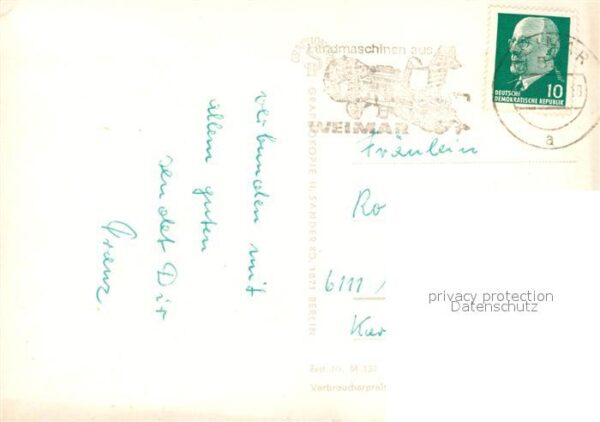 verbunden mit
allem guten
sendet Dir
Franz.
Landmaschinen aus
WEIMAR
10
DEUTSCHE
DEMOKRATISCHE REPUBLIK
a
GRAPHOKOPIE H. SANDER KG, 1071 BERLIN
Fräulein
Ro
6111
Kar
privacy protection
Datenschutz
Best. Nr. M 132
Verbraucherpreis